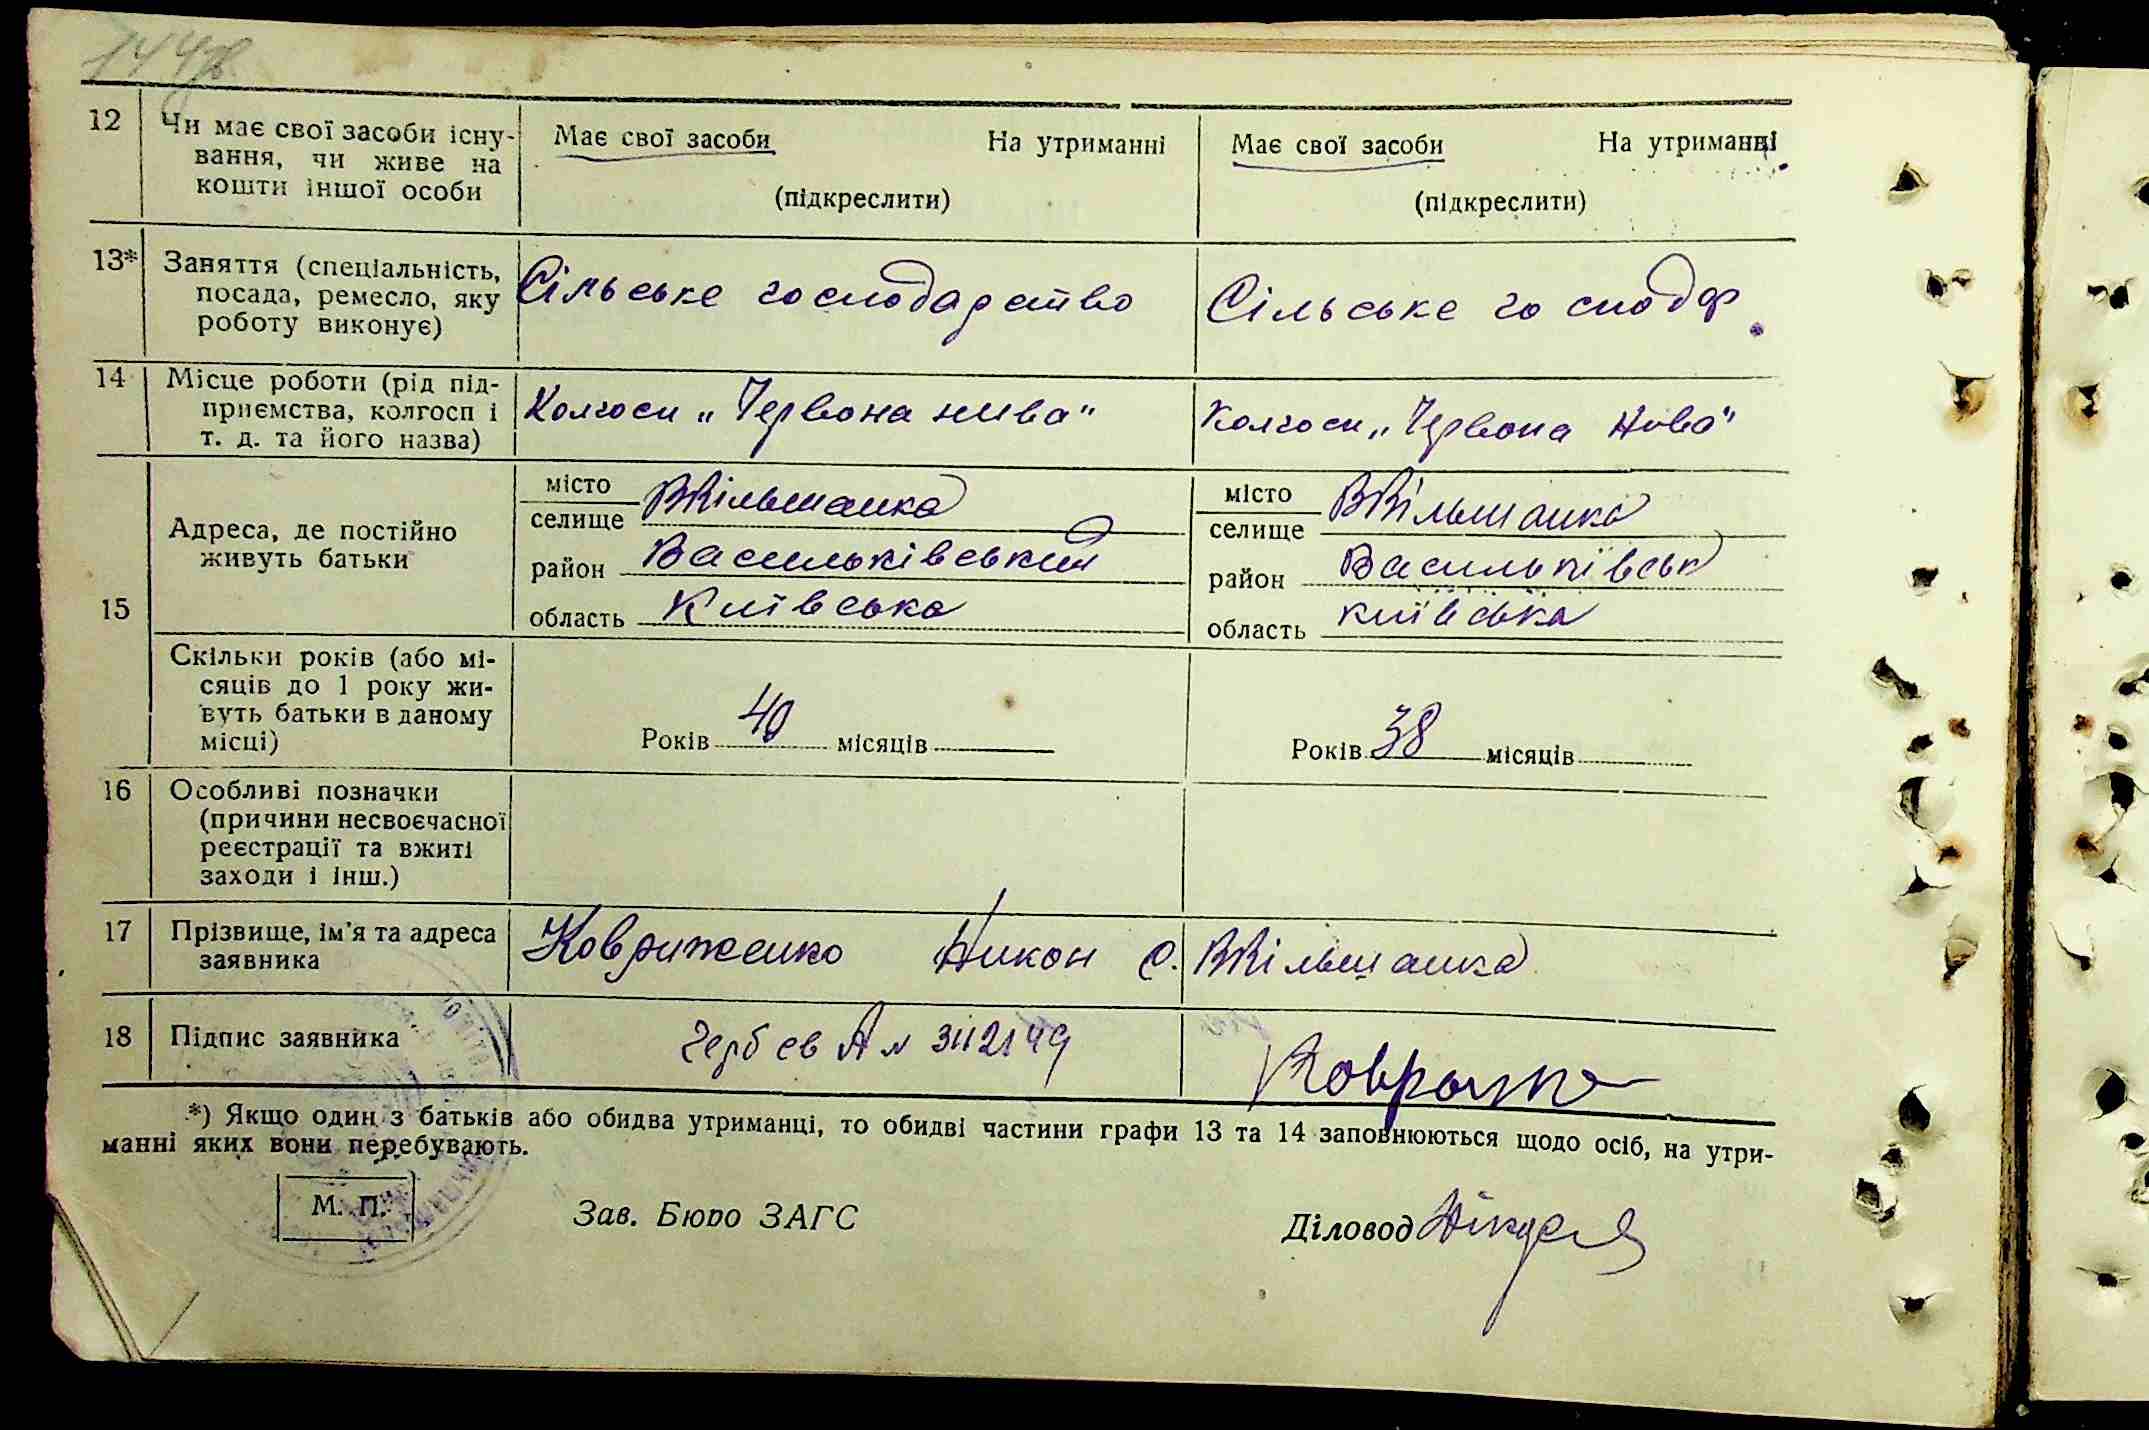 144
12 Чи має свої засоби існу- Має свої засоби На утриманні Має свої засоби На утриманні
вання, чи живе на
кошти іншої особи (підкреслити) (підкреслити)
13* Заняття (спеціальність, Сільське господарство Сільське господар
посада, ремесло, яку
роботу виконує)
14 Місце роботи (рід під- Колгосп „Червона нива" Колгосп „Червона Нива"
приємства, колгосп і
т. д. та його назва)
15 Адреса, де постійно місто ВВільшанка місто ВВільшанка
живуть батьки селище селище
район Васильківський район Васильківськ
область Київська область київська
Скільки років (або мі-
сяців до 1 року жи-
вуть батьки в даному
місці) Років 40 місяців Років 38 місяців
16 Особливі позначки
(причини несвоєчасної
реєстрації та вжиті
заходи і інш.)
17 Прізвище, ім'я та адреса Ковриженко Никон С. ВВільшанка
заявника
18 Підпис заявника
*) Якщо один з батьків або обидва утриманці, то обидві частини графи 13 та 14 заповнюються щодо осіб, на утри-
манні яких вони перебувають.
М. П. Зав. Бюро ЗАГС Діловод